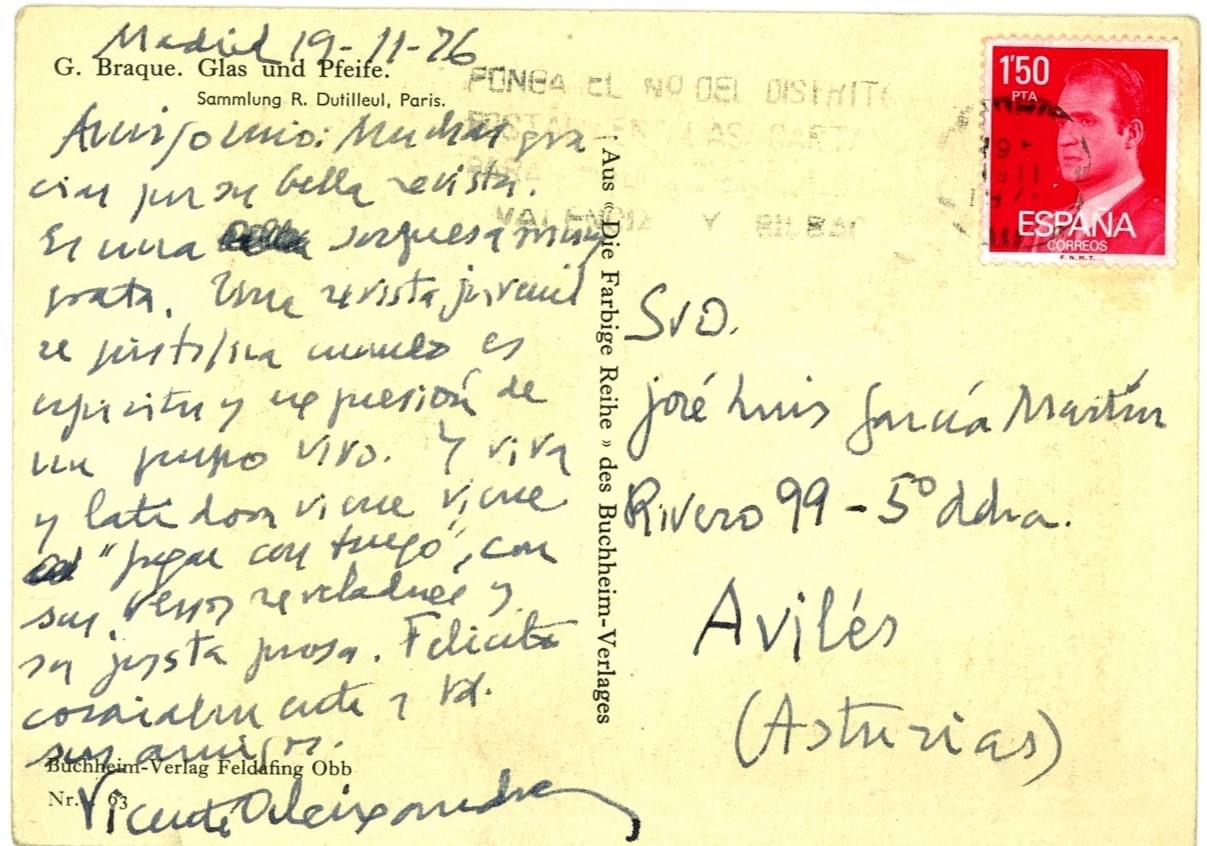 Madrid 19-11-76
G. Braque. Glas und Pfeife.
Sammlung R. Dutilleul, Paris.
Amigo mio: Muchas gra
cias por su bella revista.
Es una sorpresa muy
grata. Una revista juvenil
se justifica cuando es
espiritu y expresión de
un grupo vivo. Y viva
y latidora viene viene
"jugar con fuego", con
sus versos reveladores y
su justa prosa. Felicite
cordialmente a Vd.
sus amigos.
Vicente Aleixandre
Buchheim-Verlag Feldafing Obb
Nr. 63
Aus «Die Farbige Reihe» des Buchheim-Verlages
PONGA EL Nº DEL DISTRITO
POSTAL EN LAS CARTAS
PARA
VALENCIA Y BILBAO
1'50
PTA
ESPAÑA
CORREOS
F.N.M.T.
SrD.
José Luis García Martín
Rivero 99-5º ddra.
Avilés
(Asturias)